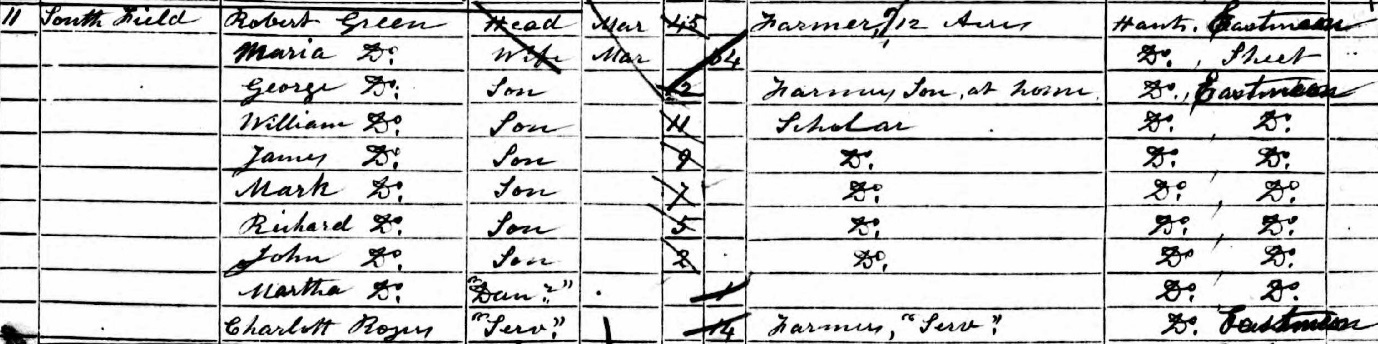 11 South Field Robert Green Head Mar 45 Farmer, 12 Acres Hants. Eastmeon
Maria Do. Wife Mar 34 Do., Sheet
George Do. Son 12 Farmers Son, at home. Do., Eastmeon
William Do. Son 11 Scholar Do. Do.
James Do. Son 9 Do. Do. Do.
Mark Do. Son 7 Do. Do., Do.
Richard Do. Son 5 Do. Do., Do.
John Do. Son 2 Do. Do. Do.
Martha Do. "Daur." 1 Do. Do.
Charlett Rogers "Serv." 14 Farmers, "Serv". Do. Eastmeon